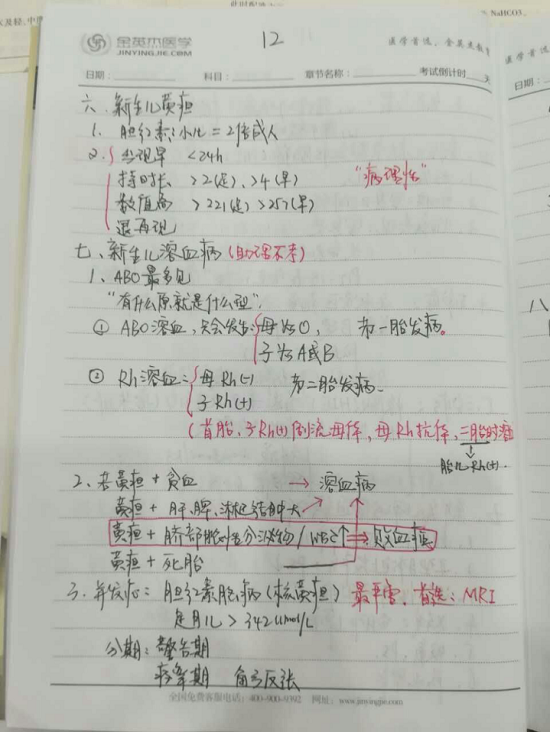 此时配
NaHCO3.
金英杰医学
JINYINGJIE.COM
12
医学首选,金英杰教
日期: 科目: 章节名称: 考试倒计时 天
六、新生儿黄疸
1. 胆红素:小儿=2倍成人
2. 出现早 <24h
持时长 >2(足)、>4(早)
数值高 >221(足) >257(早)
退再现
"病理性"
七、新生儿溶血病(助理不考)
1、ABO最多见
"有什么原就是什么型".
① ABO溶血,只会发生:母为O, 第一胎发病。
子为A或B
② Rh溶血:母Rh(-) 第二胎发病.
子Rh(+)
(首胎、子Rh(+)倒流母体,母Rh抗体,二胎时溶
胎儿Rh(+).
2、若黄疸+贫血 → 溶血病
黄疸+肝、脾、淋巴结肿大
黄疸+脐部脓性分泌物/WBC↑ ⇒ 败血症
黄疸+死胎
3、并发症:胆红素脑病(核黄疸) 最严重、首选:MRI
足月儿>342umol/L
分期:警告期
痉挛期 角弓反张
全国免费客服电话:400-900-9392 网址:www.jinyingjie.com
医学首
日期:
八